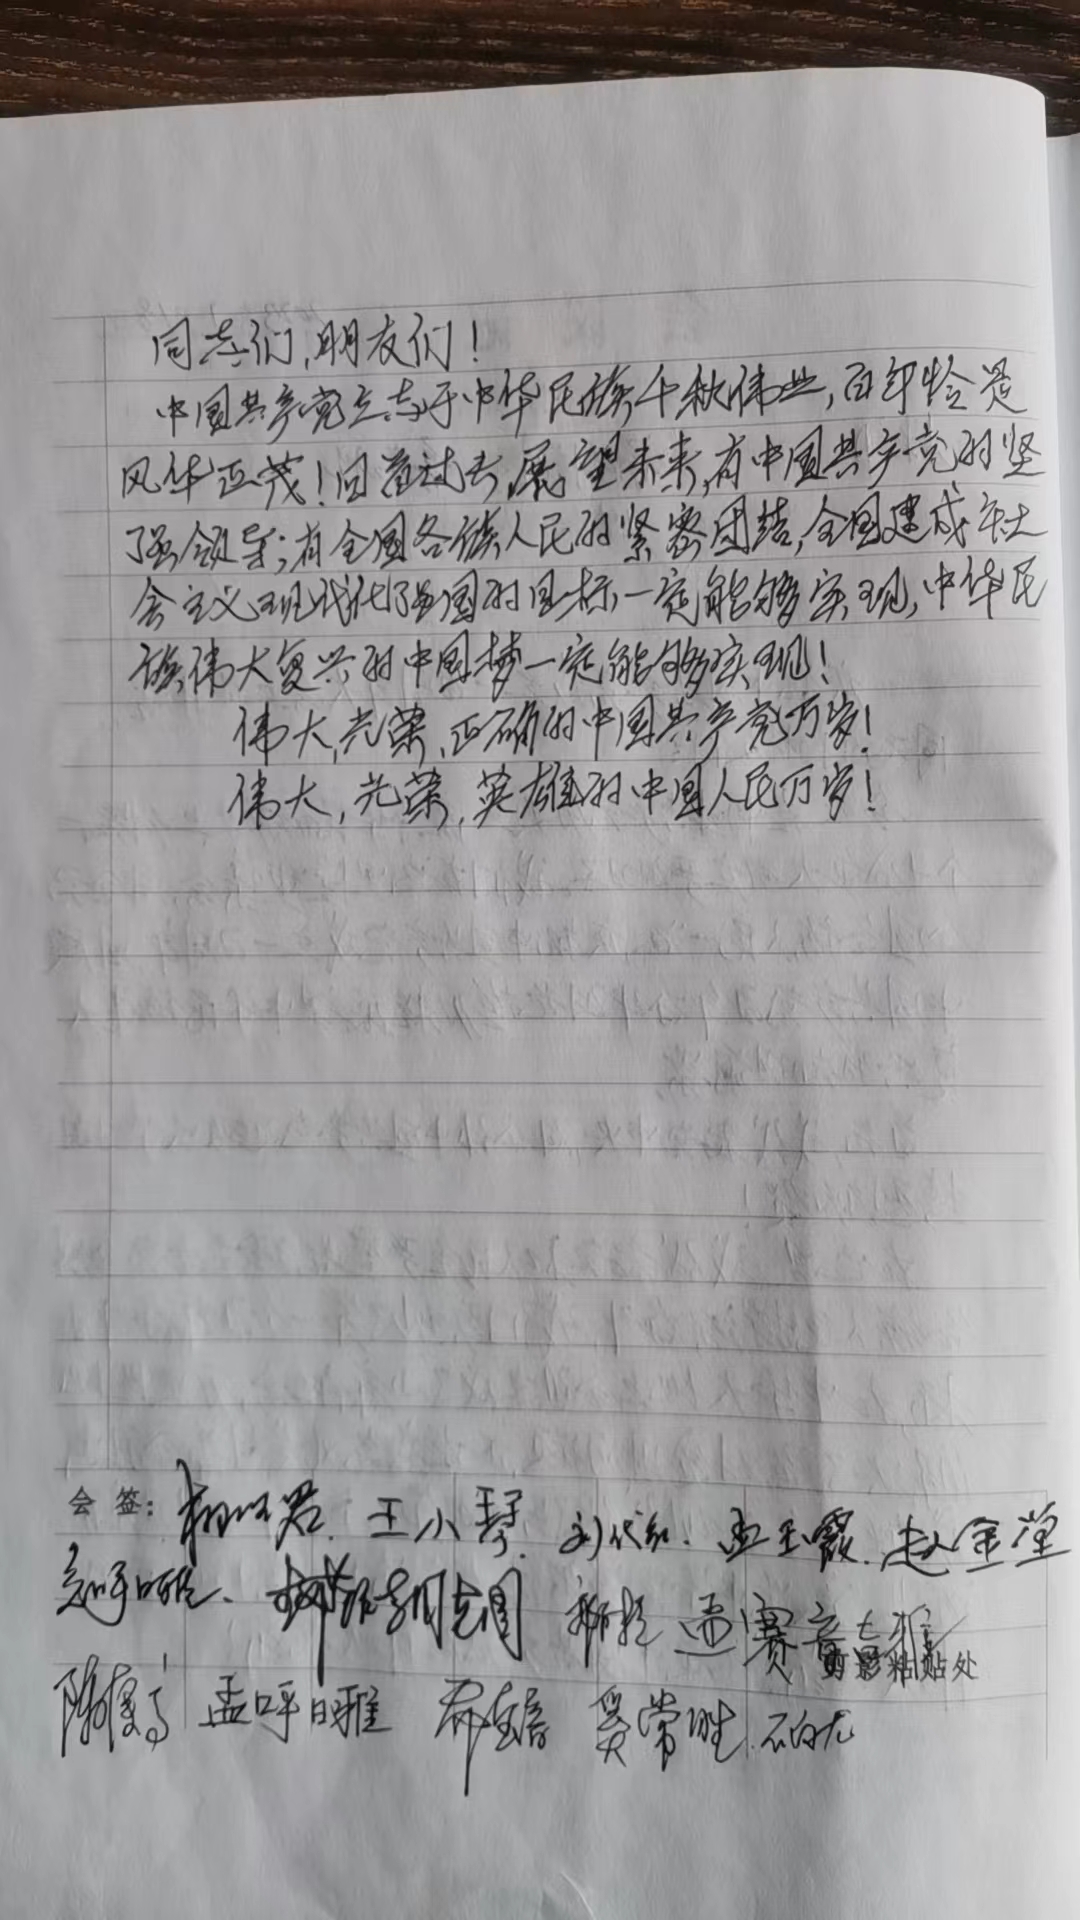 同志们,朋友们!
中国共产党立志于中华民族千秋伟业,百年恰是
风华正茂!回首过去,展望未来,有中国共产党的坚
强领导;有全国各族人民的紧密团结,全国建成社
会主义现代化强国的目标一定能够实现,中华民
族伟大复兴的中国梦一定能够实现!
伟大,光荣,正确的中国共产党万岁!
伟大,光荣,英雄的中国人民万岁!
会 签: 王小琴. 刘代红. 孟玉霞. 赵金堂
孟赛音
剪影粘贴处
孟呼日雅